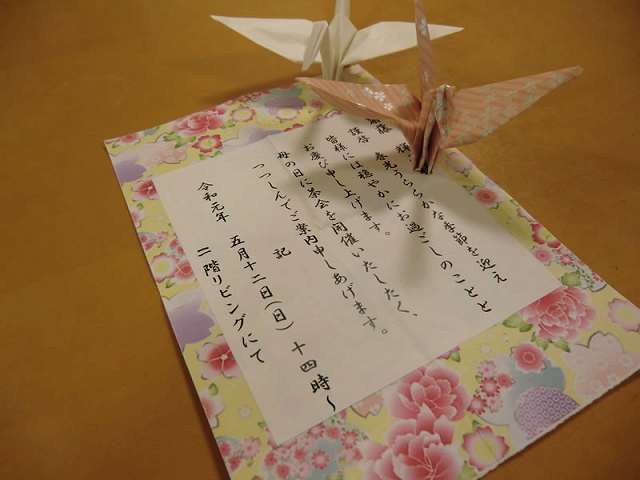 謹啓 春光うららかな季節を迎え
皆様には穏やかにお過ごしのことと
お慶び申し上げます。
母の日に茶会を開催いたしたく、
つつしんでご案内申しあげます。
記
令和元年 五月十二日(日) 十四時~
二階リビングにて